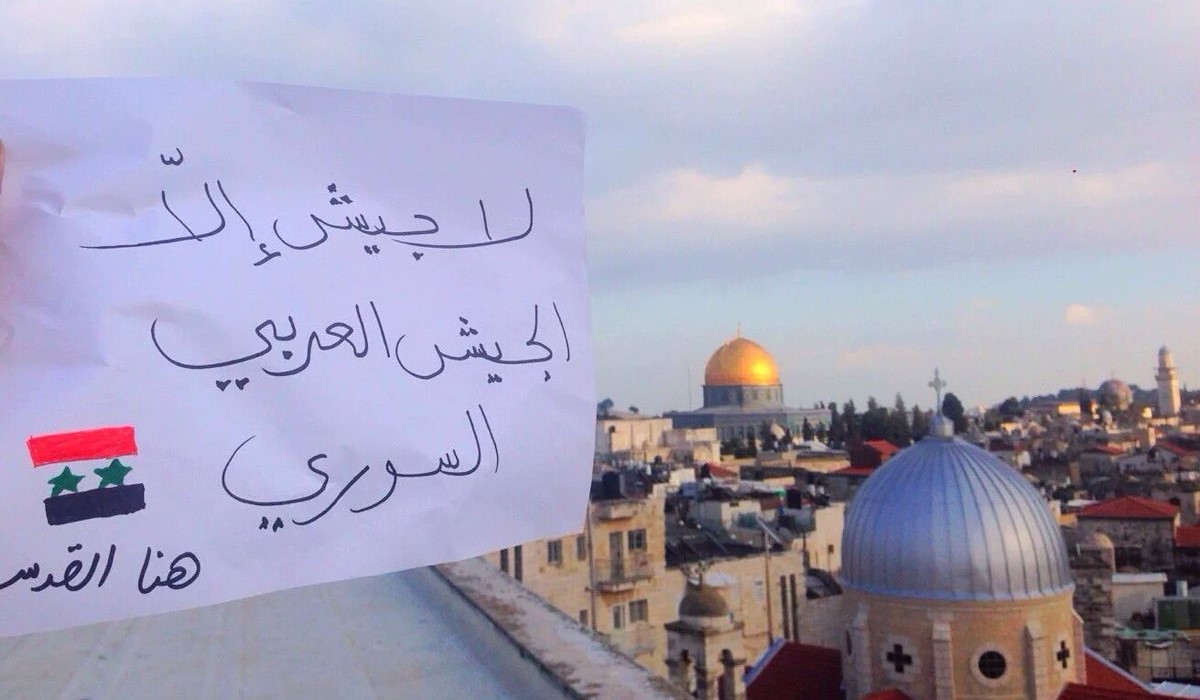 لا جيش إلّا
الجيش العربي
السوري
هنا القدس